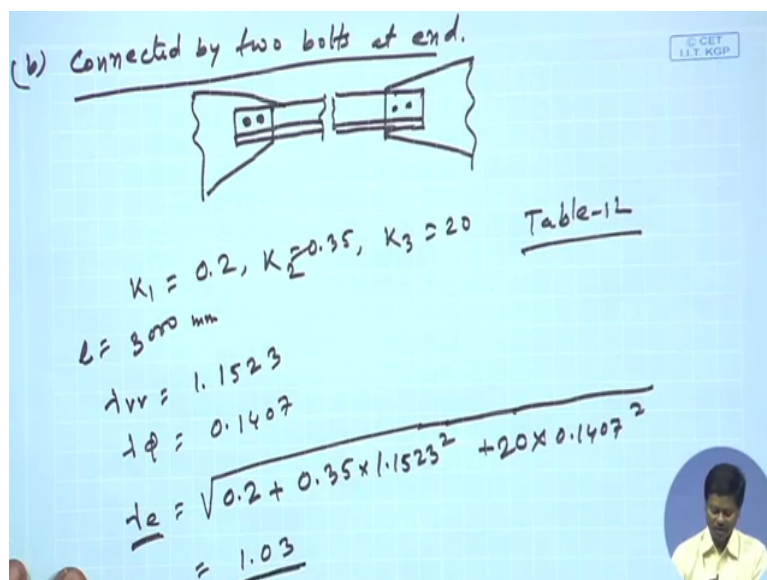 (b) Connected by two bolts at end.
© CET
I.I.T. KGP
K₁ = 0.2, K₂ = 0.35, K₃ = 20
Table-12
l = 3000 mm
λvv = 1.1523
λφ = 0.1407
λe = √0.2 + 0.35 × 1.1523² + 20 × 0.1407²
= 1.03